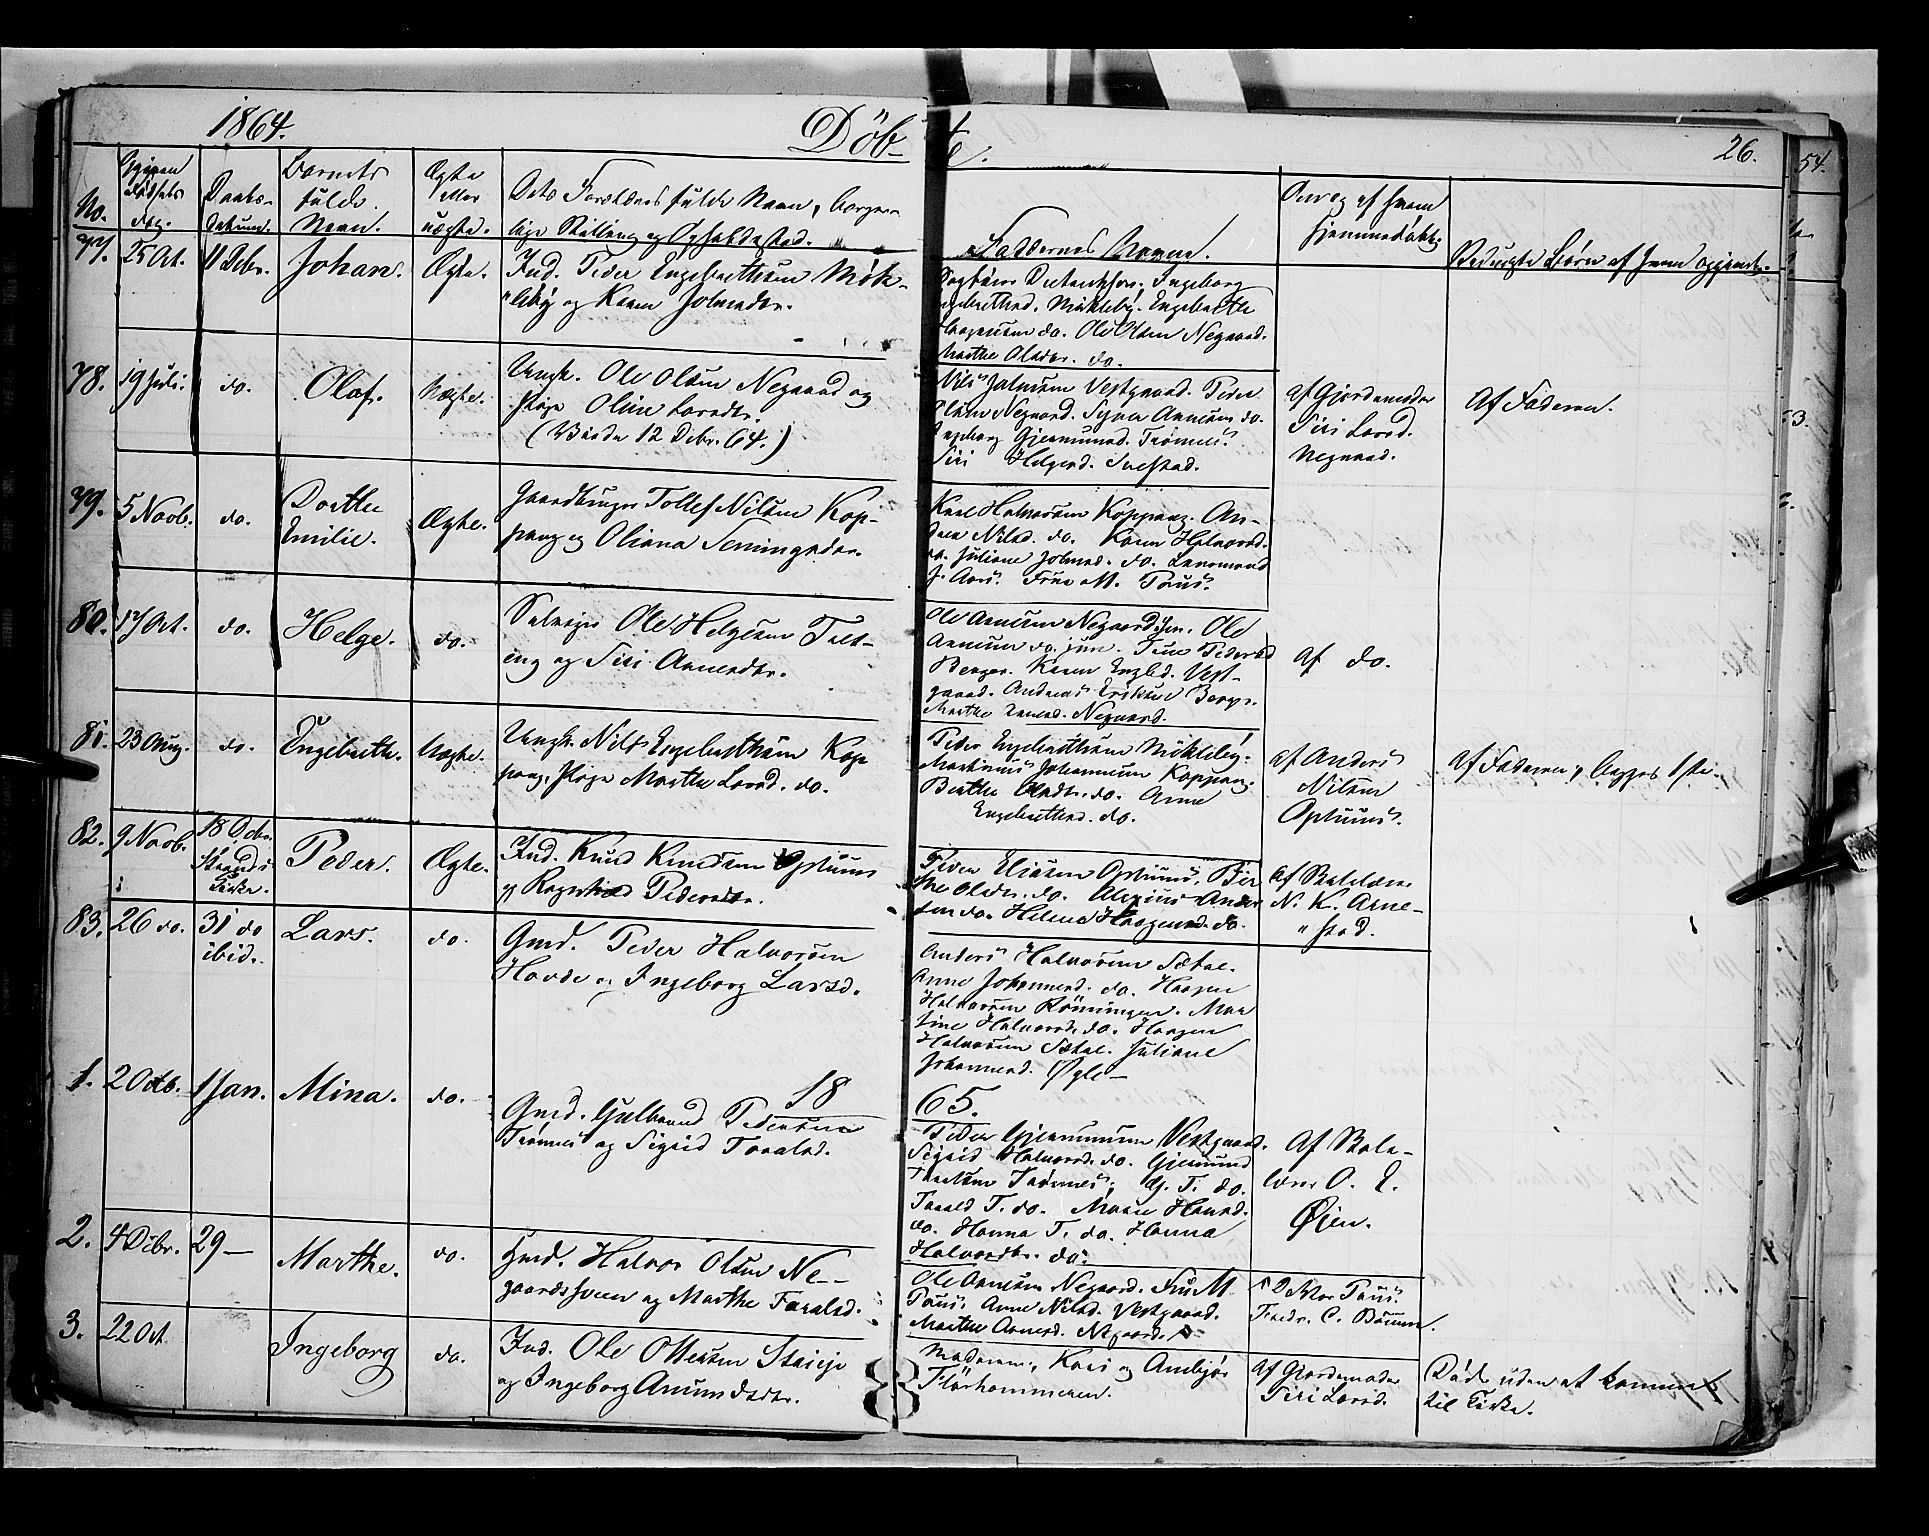 1864.
Döb-
te.
26.
54.
No.
Opgiven
Fødsels
dag.
Daabs-
datum.
Barnets
fulde
Navn.
Ægte
eller
uægte.
Dets Forældres fulde Navn, borger-
lige Stilling og Opholdssted.
Faddernes Navne.
Om og af hvem
hjemmedøbt.
Ved uægte Børn af hvem opgivet.
77. 25 Oct. 11 Debr. Johan. Ægte.
Ind. Peder Engebrethsen Mök-
leby og Karen Johnsdtr.
Ingeborg
Engebrethsd. Mökleby. Engebrethe
do. Ole Olsen Negaard.
Marthe Olsdtr. do.
78. 19 Juli. do. Olof. Uægte.
Ungk. Ole Olsen Negaard og
Pige Oline Larsdtr.
(Viede 12 Debr. 64.)
Nils Johnsen Vestgaard. Peder
Olsen Negaard. Syver Arnesen do.
Ingeborg Gjermunds. Trønnes.
Siri Helgesd.
af Gjordemoder
Siri Larsd.
Negaard.
Af Faderen.
79. 5 Novb. do. Dorthe
Emilie. Ægte.
Gaardbruger Tollef Nilsen Kop-
pang og Oliana Semingsdtr.
Karl Halvorsen Koppang. An-
drea Nilsd. do. Karen Halvorsd.
do. Juliane Johnsd. do. Lensmand
J. Aars. Frue M. Paus.
80. 17 Oct. do. Helge. do.
Selveier Ole Helgesen Tres-
eng og Siri Arnesdtr.
Ole Arnesen Negaard sen. Ole
Arnesen do. jun. Tine Pedersd
Berger. Karen Engebd. Vest-
gaard. Andreas Eriksen Berger.
Marthe Arnesd. Negaard.
af do.
81. 23 Aug. do. Engebreth. Uægte.
Ungk. Nils Engebrethsen Kop
pang, Pige Marthe Larsd. do.
Peder Engebrethsen Mökleby.
Martinus Johannesen Koppang.
Berthe Olsdtr. do. Anne
Engebrethsd. do.
af Anders
Nilsen
Ophuus.
Af Faderen, begges 1ste.
82. 9 Novb. 18 Debr.
Strands
Kirke. Peder. Ægte.
Ind. Knud Knudsen Ophuus
og Ragnhild Pedersdtr.
Peder Eliasen Ophuus. Ber
the Olsdtr. do. Alexius Ander
sen do. Helene Haagensd. do.
af Skolelær.
N. K. Arne-
stad.
83. 26 do. 31 do
ibid. Lars. do.
Gmd. Peder Halvorsen
Hovde og Ingeborg Larsd.
Anders Halvorsen Sætal.
Anne Johannesd. do. Haagen
Halvorsen Rönningen. Mar
tine Halvorsd. do. Haagen
Halvorsen Sætal. Juliane
Johannesd. Øgle
1865.
1. 2 Octb. 1 Jan. Mina. do.
Gmd. Gulbrand Pedersen
Trönnes og Sigrid Taralsd.
Peder Gjermunsen Vestgaard.
Sigrid Halvorsd. do. Gjermund
Trönnes. G. T. do.
Tarald T. do. Marie Hansd.
do. Hanna T. do. Hanna
Halvorsdtr. do.
Af Skole-
lærer O. E.
Øien.
2. 4 Debr. 29 — Marthe. do.
Gmd. Halvor Olsen Ne-
gaardssveen og Marthe Taralsd.
Ole Arnesen Negaard. Fru M.
Paus. Anne Nilsd. Vestgaard.
Marthe Arnesd. Negaard.
Paus.
3. 22 Oct. Ingeborg do.
Ind. Ole Ottersen Steieje
og Ingeborg Amundsdtr.
Moderen, Kari og Ambjør
Flörhammeren.
af Gjordemoder
Siri Larsd.
Døde uden at komme
til Kirke.